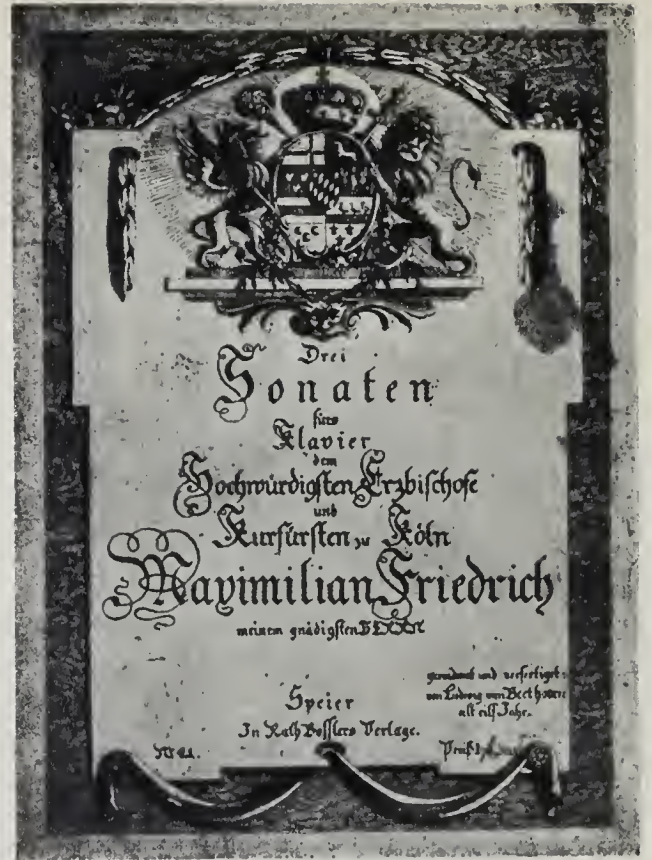 Drei
Sonaten
fürs
Klavier
dem
Hochwürdigsten Erzbischofe
und
Kurfürsten zu Köln
Maximilian Friedrich
meinem gnädigsten HERRN
gewidmet und verfertiget
von Ludwig van Beethoven
alt eilf Jahr.
Speier
In Rath Bosslers Verlage.
Preiß